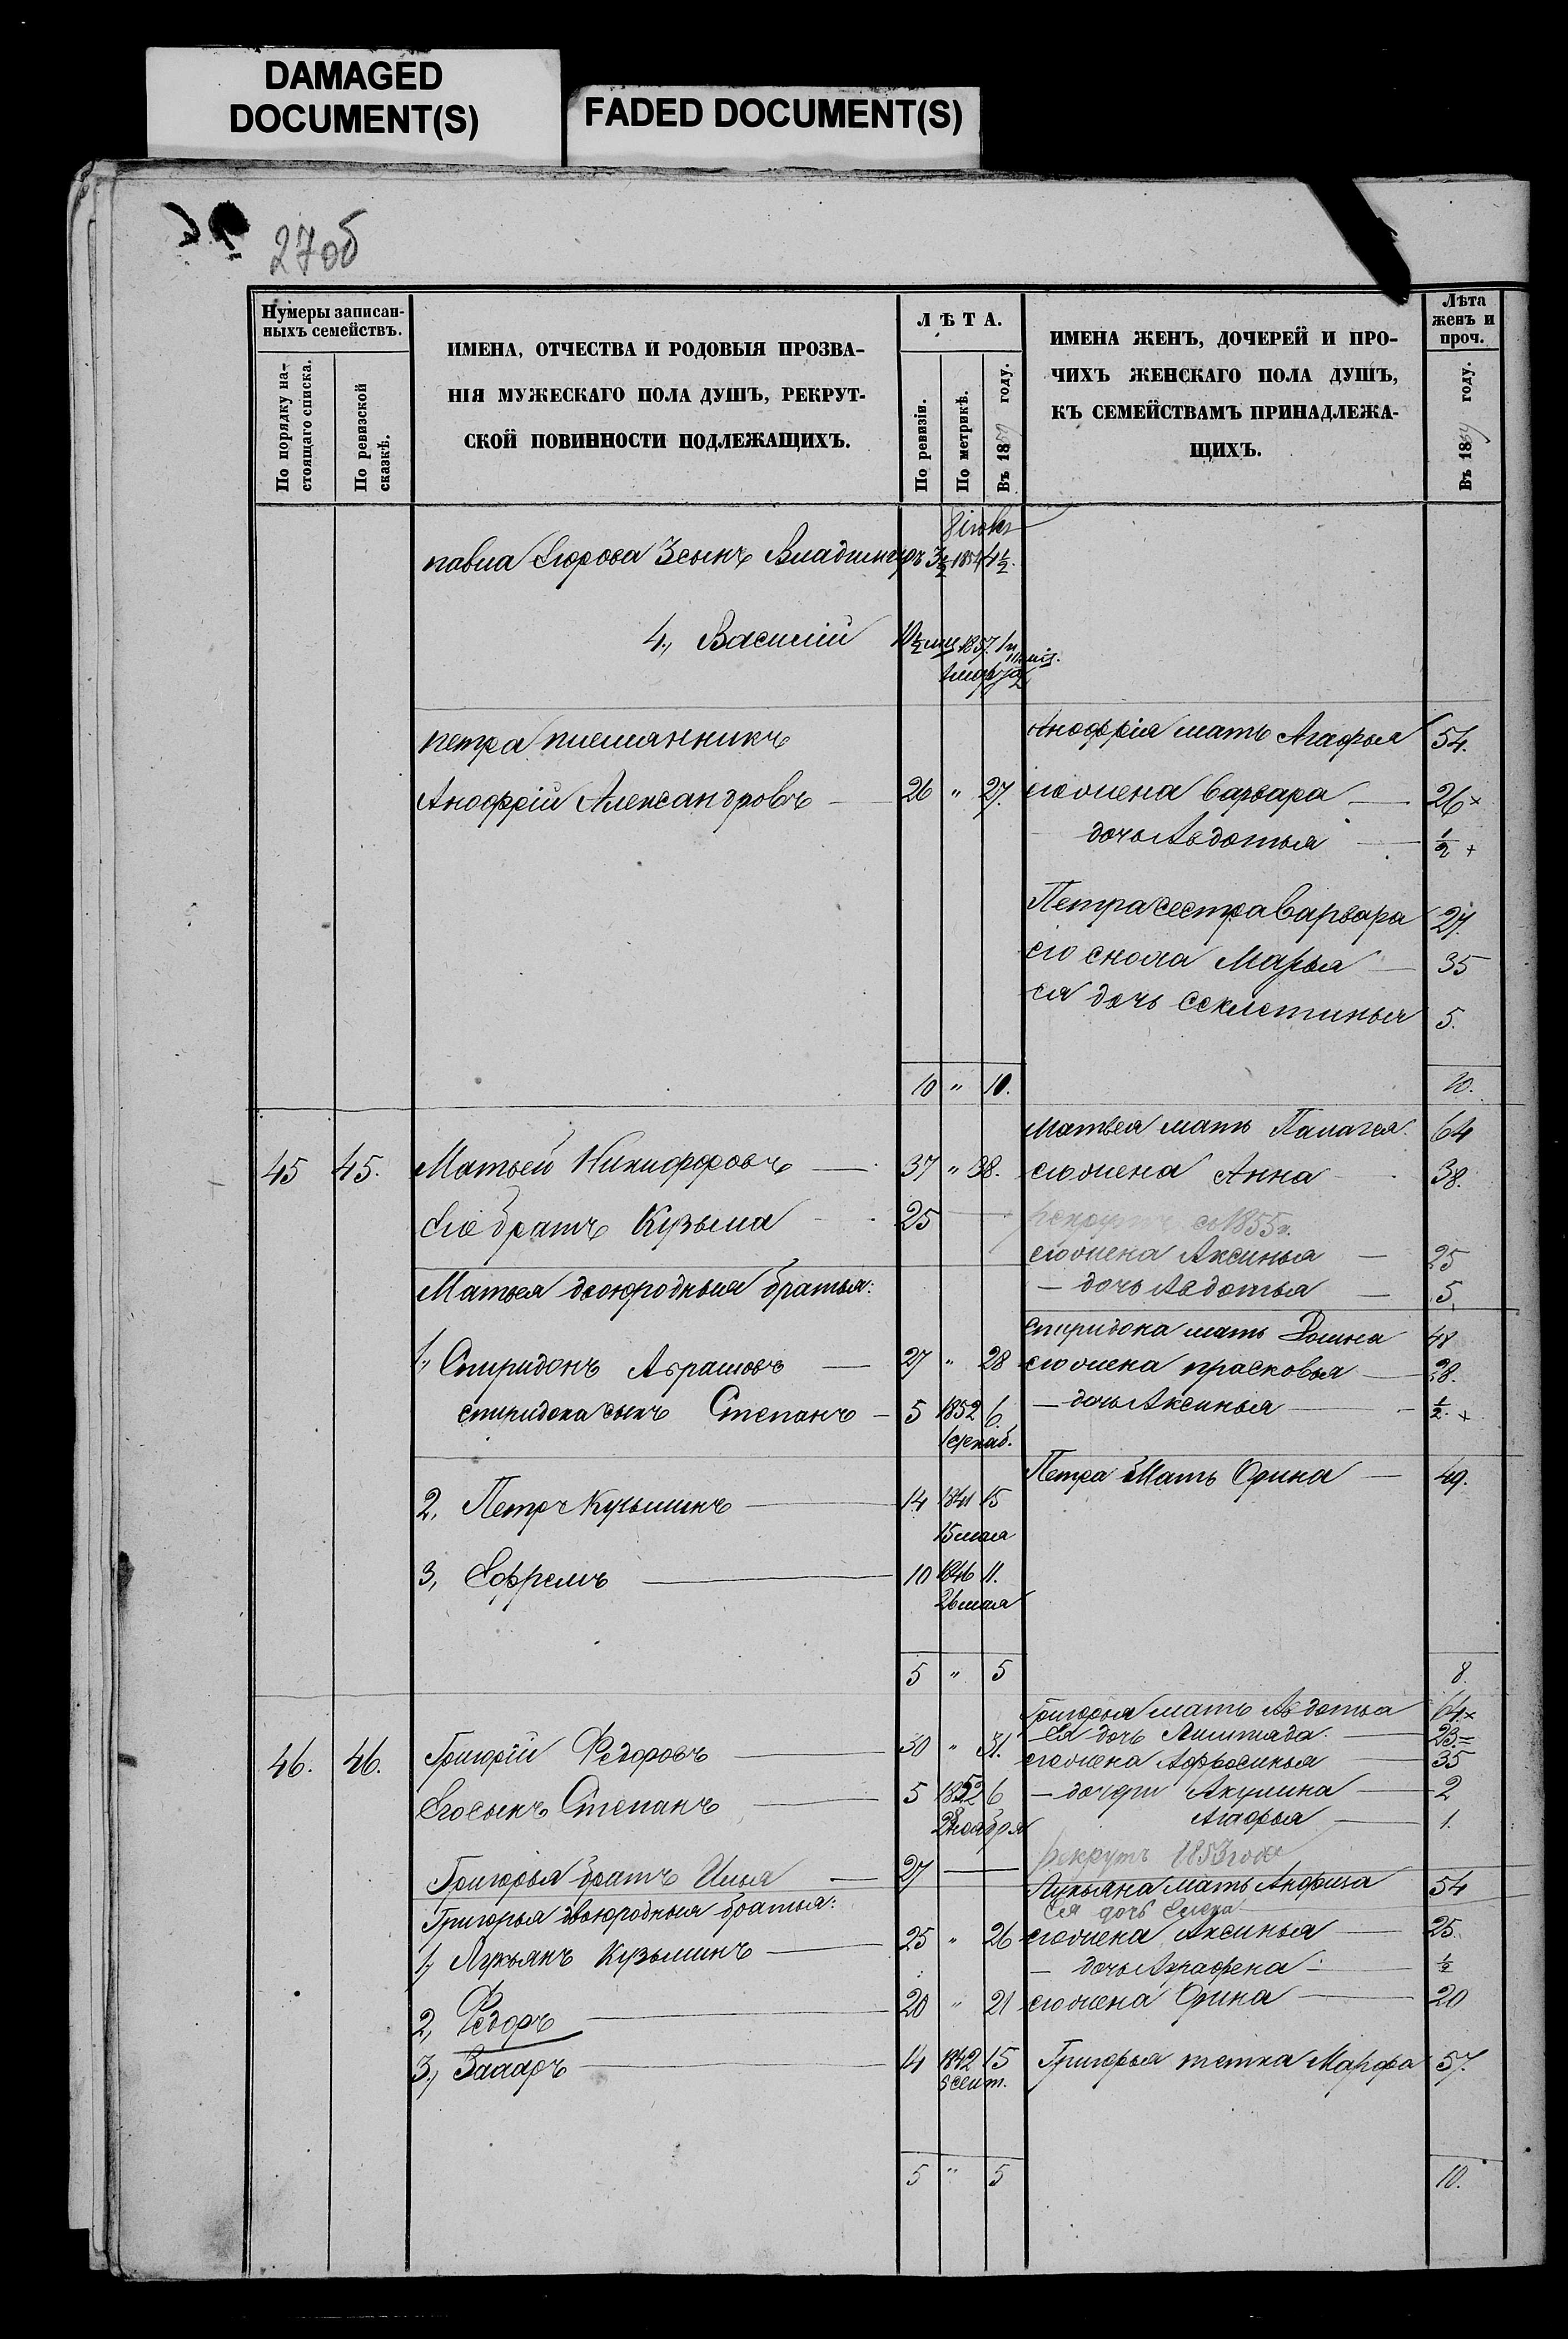 DAMAGED
DOCUMENT(S)
FADED DOCUMENT(S)
27об
Нумеры записан-
ныхъ семействъ.
По порядку на-
стоящаго списка.
По ревизской
сказкѣ.
ИМЕНА, ОТЧЕСТВА И РОДОВЫЯ ПРОЗВА-
НІЯ МУЖЕСКАГО ПОЛА ДУШЪ, РЕКРУТ-
СКОЙ ПОВИННОСТИ ПОДЛЕЖАЩИХЪ.
ЛѢТА.
По ревизіи.
По метрикѣ.
Въ 18 году.
ИМЕНА ЖЕНЪ, ДОЧЕРЕЙ И ПРО-
ЧИХЪ ЖЕНСКАГО ПОЛА ДУШЪ,
КЪ СЕМЕЙСТВАМЪ ПРИНАДЛЕЖА-
ЩИХЪ.
Лѣта
женъ и
проч.
Въ 18 году.
павла 3 сынъ Владимиръ 3½ 1854 4½.
4., Василій 1857.
Анофрія мать Агафья 54.
петра племянникъ
Анофрій Александровъ 26 " 27. его жена Варвара 26 ×
дочь Авдотья ½ +
Петра сестра Варвара 27.
его сноха Марья 35
ея дочь Секлетинья 5.
10 " 10. 10.
Матвея мать Палагея. 64
45 45. Матвей Никифоровъ 37 " 38. его жена Анна 38.
Его братъ Кузьма 25 рекрутъ съ 1855 г.
его жена Аксинья 25
Матвея двоюродныя братья: — дочь Авдотья 5.
Спиридона мать 48
1., Спиридонъ Абрамовъ 27 " 28 его жена прасковья 28.
спиридона сынъ Степанъ 5 1852 6. — дочь Аксинья ½. +
Петра Мать Орина 49.
2, Петръ Кузьминъ 14 1841 15
15 мая
3, Ефремъ 10 1846 11.
26 мая
5 " 5 8.
Григорья мать Авдотья 64 ×
Ея дочь 23. =
46. 46. Григорій Федоровъ 30 " 31. его жена Афросинья 35
Его сынъ Степанъ 5 1852 6 — дочери Акулина 2
28 ноября Агафья 1.
Григорья братъ Илья 27 рекрутъ 1853 года
Лукьяна мать Анфиса 54
Григорья двоюродныя братья: Ея дочь Елена
1, Лукьянъ Кузьминъ 25 " 26 его жена Аксинья 25.
— дочь Аграфена ½
2, Федоръ 20 " 21 его жена Орина 20
3., Захаръ 14 1842 15 Григорья тетка Марфа 57.
5 сент.
5 " 5 10.